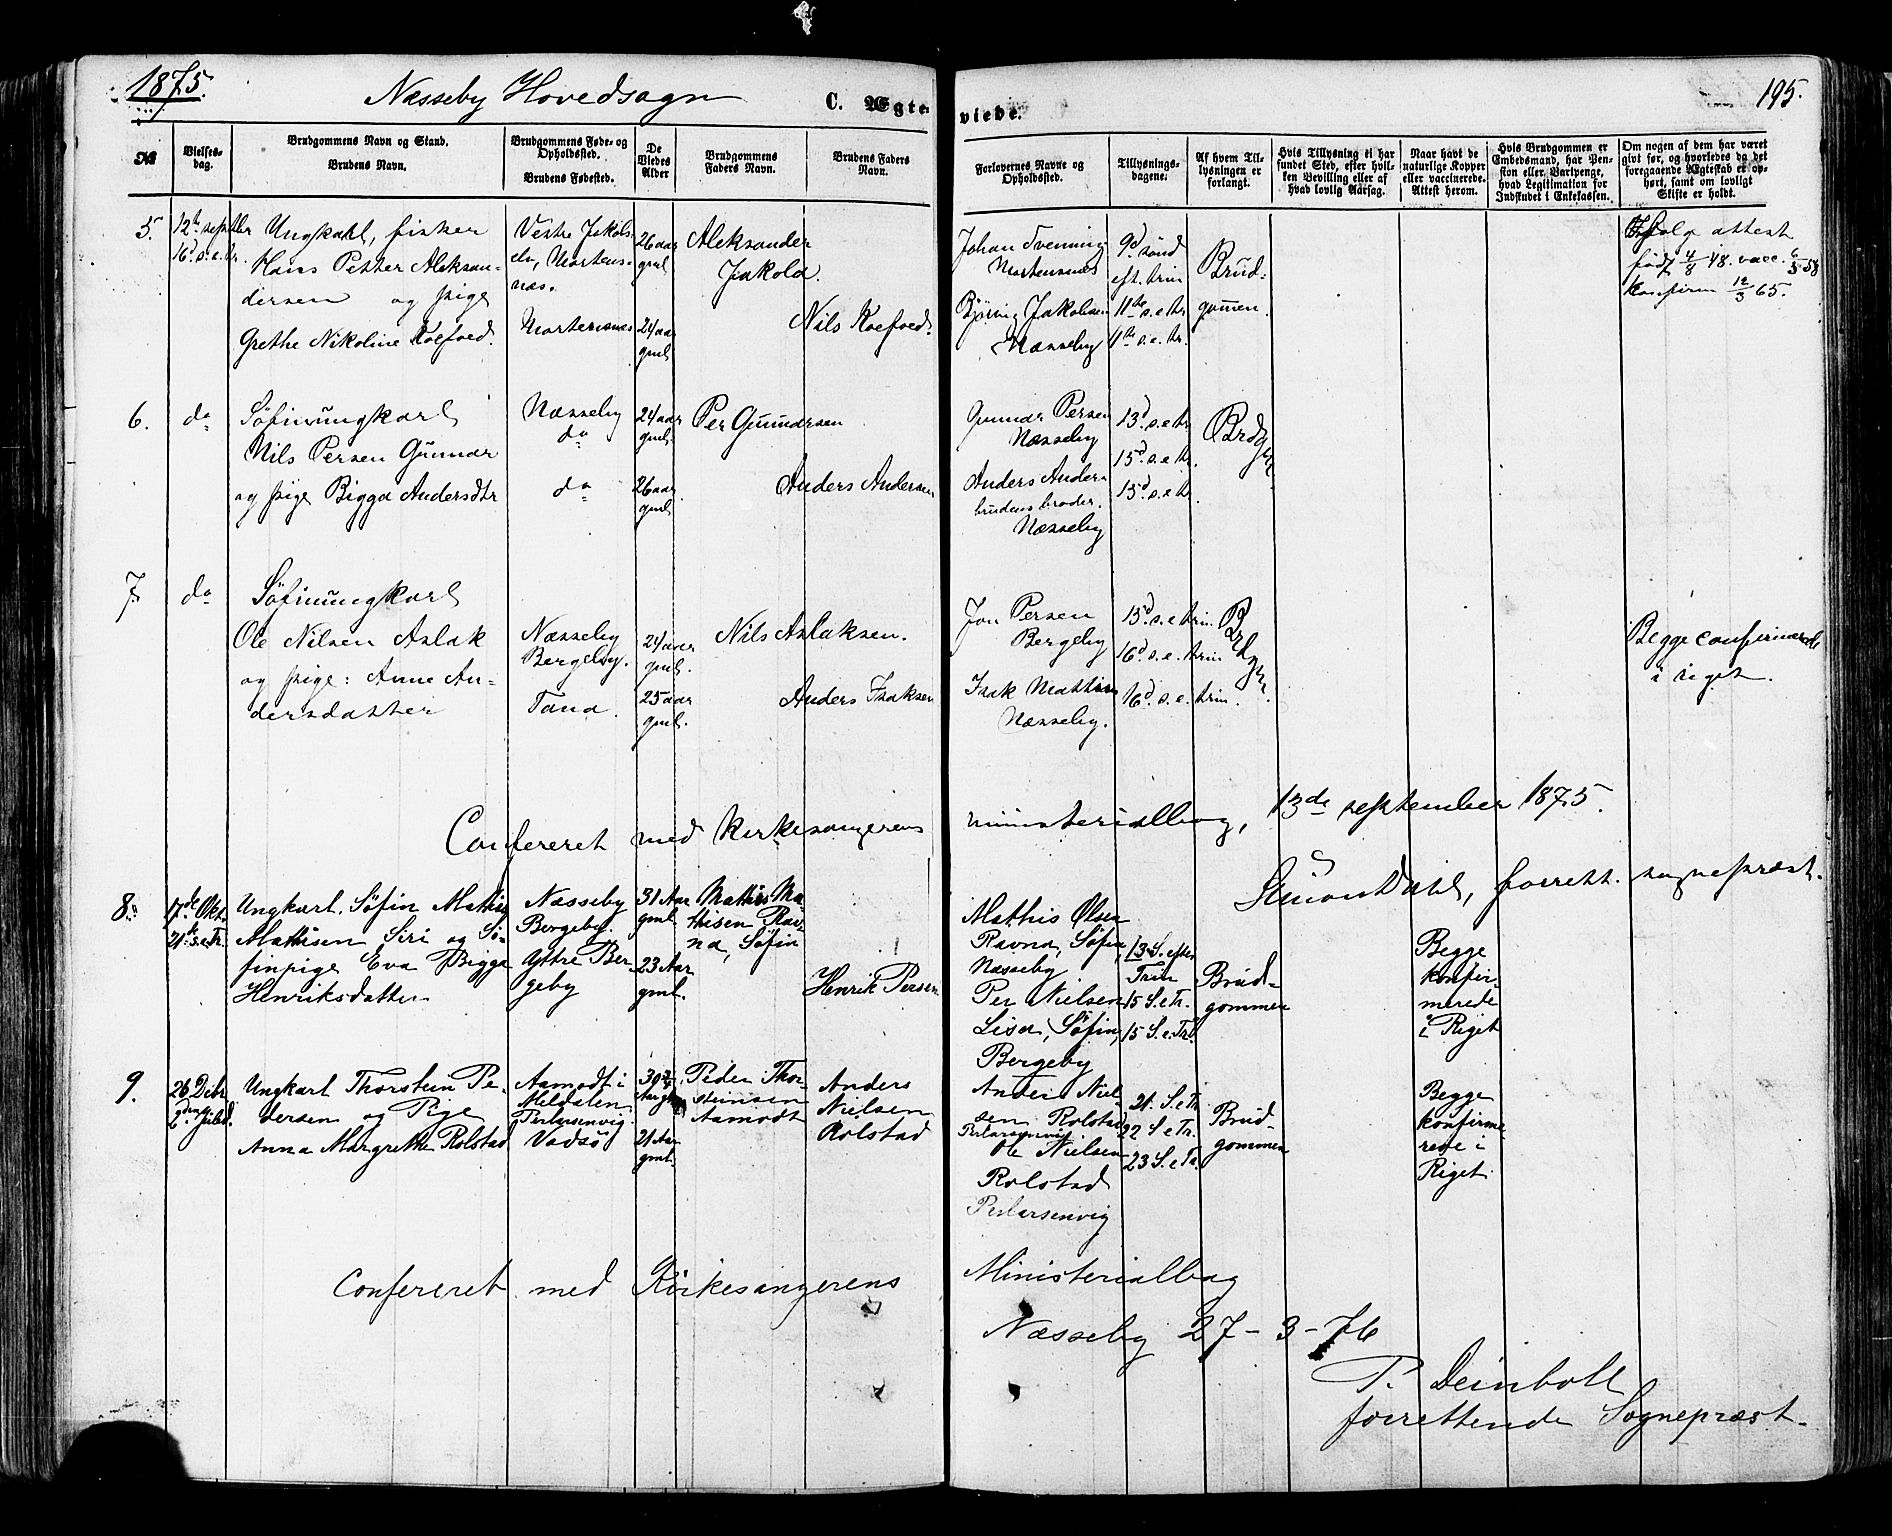 1875.
Næsseby Hovedsogn
C. Ægteviede.
195.
№
Vielses-dag.
Brudgommens Navn og Stand.
Brudens Navn.
Brudgommens Føde- og Opholdssted.
Brudens Fødested.
De Viedes Alder
Brudgommens Faders Navn.
Brudens Faders Navn.
Forlovernes Navne og Opholdssted.
Tillysnings-dagene.
Af hvem Tillysningen er forlangt.
Hvis Tillysning ei har fundet Sted, efter hvilken Bevilling eller af hvad lovlig Aarsag.
Naar havt de naturlige Kopper eller vaccinerede. Attest herom.
Hvis Brudgommen er Embedsmand, har Pension eller Vartpenge, hvad Legitimation for Indskudet i Enkekassen.
Om nogen af dem har været givt før, og hvorledes da det foregaaende Ægteskab er ophørt, samt om lovligt Skifte er holdt.
5.
12te septbr
16d. s. e. tr.
Ungkarl, fisker
Hans Petter Aleksan-
dersen og pige
Grethe Nikoline Koefoed.
Vestre Jakobs-
elv, Mortens-
næs.
Mortensnæs
26 aar
gml
24 aar
gml
Aleksander
Jakola.
Nils Koefoed.
Johan Tvenning
Mortensnæs
Bjørning Jakobsen
Næsseby
9d sønd
eft. trin
11te s. e. tr.
11te s. e. tr.
Brud-
gommen.
Ifølge attest
født 4/8 48. vacc. 6/5 58
konfirm 12/3 65.
6.
do
Søfinungkarl
Nils Persen Gunnar
og pige Bigga Andersdtr
Næsseby
do
do
24 aar
gml.
26 aar
gml
Per Gunnarsen
Anders Andersen
Gunnar Persen
Næsseby
Anders Anders.
brudens broder.
Næsseby
13d. s. e tr
15d. s. e. tr.
15d. s. e tr.
Brdgm
7.
do
Søfinungkarl
Ole Nilsen Aslak
og pige: Anne An-
dersdatter
Næsseby
Bergeby.
Tana.
24 aar
gml.
25 aar
gml.
Nils Aslaksen.
Anders Isaksen
Jon Persen
Bergeby
Isak Mathisen
Næsseby.
15d. s. e trin.
16d. s. e. trin
16d. s. e. trin.
Brdgm.
Begge confirmerede
i riget.
Confereret med kirkesangerens ministerialbog, 13de september 1875.
Simon Dahl, forrett. sognepræst.
8.
17de Okt.
21de S.e.Tr.
Ungkarl, Søfin Mathis
Mathisen Siri og Sø-
finpige Eva Bigga
Henriksdatter
Næsseby
Bergeby.
Yttre Ber-
geby
31 Aar
gml.
23 Aar
gml.
Mathis Ma-
thisen Rav-
na, Søfin
Henrik Persen
Mathis Olsen
Ravna, Søfin,
Næsseby
Per Nielsen
Lisa, Søfin,
Bergeby
13 S. efter
Trin
15 S. e Tr.
15 S. e. Tr.
Brud-
gommen
Begge
konfir-
merede
i Riget
9.
26 Decbr
2den Juled.
Ungkarl Thorstein Pe-
dersen og Pige
Anna Margrethe Rolstad
Aamodt i
Meldalen
Perlarsenvig.
Vadsø
21 Aar
gml.
Peder Thor-
steinsen
Aamodt
Anders
Nielsen
Rolstad
Anders Niel-
sen Rolstad
Perlarsenvig
Ole Nielsen
Rolstad
Perlarsenvig
21. S. e Tr
22 S. e Tr.
23 S. e Tr.
Brud-
gommen
Begge
konfirme-
rede i
Riget.
Confereret med Kirkesangerens Ministerialbog
Næsseby 27-3-76
P. Deinboll
forrettende Sognepræst.